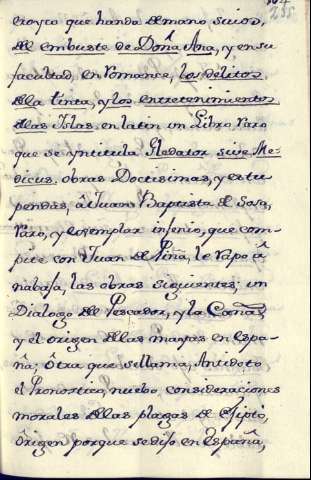 eroyco que handa demano suios,
del embuste de Doña Ana, y en su
facultad, en Romance, los delitos
della tinta, y los entretenimientos
delas Islas, en latin un Libro raro
que se yntitula Gledator sive Me-
dicus. obras Doctisimas, y estu-
pendas, â Juan Baptista de Sosa,
raro, y exemplar injenio, que com-
pite con Juan de Piña, le rapo â
nabaja, las obras siguientes; un
Dialogo del Pescador, y la Caña,
y el origen delas magas en Espa-
ña; Ôtra que sellama, Antidoto
el Pronostico, nuebo, consideraciones
morales delas plagas de Ejipto,
Ôrigen porque se dijo en España,